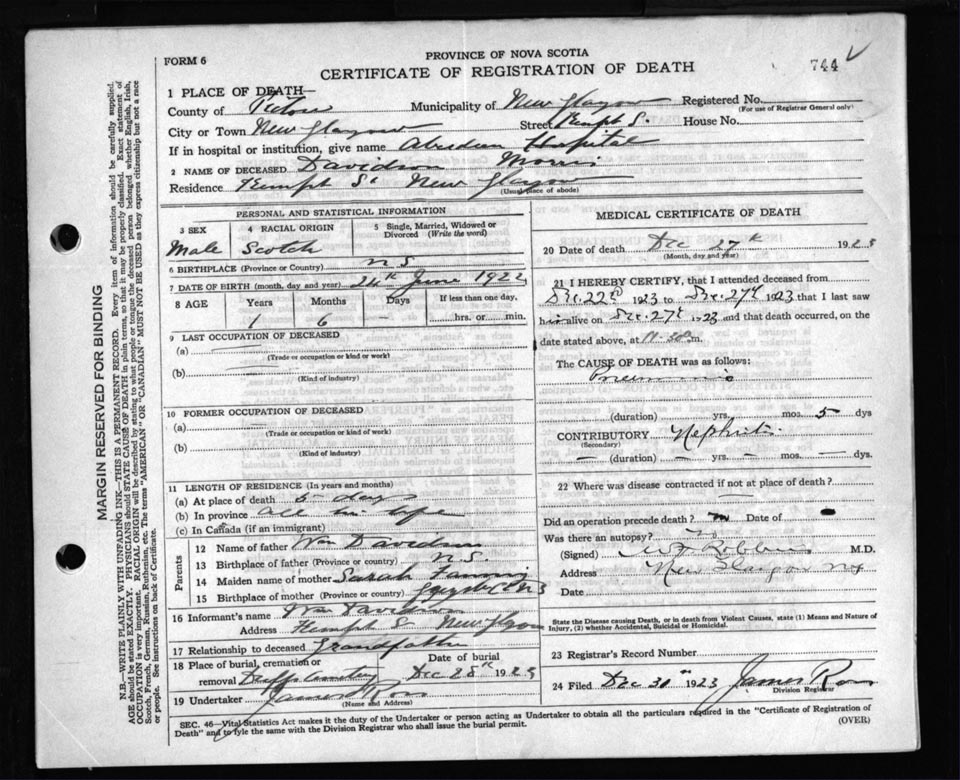 FORM 6
PROVINCE OF NOVA SCOTIA
CERTIFICATE OF REGISTRATION OF DEATH
744
1 PLACE OF DEATH—
County of Pictou Municipality of New Glasgow Registered No.
(For use of Registrar General only)
City or Town New Glasgow Street Kempt S. House No.
If in hospital or institution, give name Aberdeen Hospital
2 NAME OF DECEASED Davidson Morris
Residence Kempt St New Glasgow
(Usual place of abode)
PERSONAL AND STATISTICAL INFORMATION
3 SEX 4 RACIAL ORIGIN 5 Single, Married, Widowed or Divorced (Write the word)
Male Scotch
6 BIRTHPLACE (Province or Country) N S
7 DATE OF BIRTH (month, day and year) 24th June 1922
8 AGE Years Months Days If less than one day,
1 6 — hrs. or min.
9 LAST OCCUPATION OF DECEASED
(a)
(Trade or occupation or kind or work)
(b)
(Kind of industry)
10 FORMER OCCUPATION OF DECEASED
(a)
(Trade or occupation or kind of work)
(b)
(Kind of industry)
11 LENGTH OF RESIDENCE (In years and months)
(a) At place of death 5 days
(b) In province all his life
(c) In Canada (if an immigrant)
Parents
12 Name of father Wm Davidson
13 Birthplace of father (Province or country) N.S.
14 Maiden name of mother Sarah Fanning
15 Birthplace of mother (Province or country)
16 Informant's name Wm Davidson
Address Kempt S New Glasgow
17 Relationship to deceased Grandfather
18 Place of burial, cremation or Date of burial
removal Cemetery Dec 28th 1923
19 Undertaker James Ross
(Name and Address)
MEDICAL CERTIFICATE OF DEATH
20 Date of death Dec 27th 1923
(Month, day and year)
21 I HEREBY CERTIFY, that I attended deceased from
Dec. 22d 1923 to Dec. 27th 1923 that I last saw
him alive on Dec. 27th 1923 and that death occurred, on the
date stated above, at 11.30 m.
The CAUSE OF DEATH was as follows:
Pneumonia
(duration) yrs. mos. 5 dys
CONTRIBUTORY Nephritis
(Secondary)
— (duration) — yrs. — mos. — dys.
22 Where was disease contracted if not at place of death?
Did an operation precede death? no Date of
Was there an autopsy? no
(Signed) M.D.
Address New Glasgow NS
Date
State the Disease causing Death, or in death from Violent Causes, state (1) Means and Nature of Injury, (2) whether Accidental, Suicidal or Homicidal.
23 Registrar's Record Number
24 Filed Dec 30th 1923 James Ross
Division Registrar
SEC. 46—Vital Statistics Act makes it the duty of the Undertaker or person acting as Undertaker to obtain all the particulars required in the "Certificate of Registration of
Death" and to fyle the same with the Division Registrar who shall issue the burial permit.
(OVER)
MARGIN RESERVED FOR BINDING
N.B.—WRITE PLAINLY WITH UNFADING INK—THIS IS A PERMANENT RECORD. Every item of information should be carefully supplied.
AGE should be stated EXACTLY. PHYSICIANS should STATE CAUSE OF DEATH in plain terms, so that it may be properly classified. Exact statement of
OCCUPATION is very important. RACIAL ORIGIN will be described by stating to what people or tongue the deceased person belonged whether English, Irish,
Scotch, French, German, Russian, Ruthenian, etc. The terms "AMERICAN" OR "CANADIAN" MUST NOT BE USED as they express citizenship but not a race
or people. See instructions on back of Certificate.